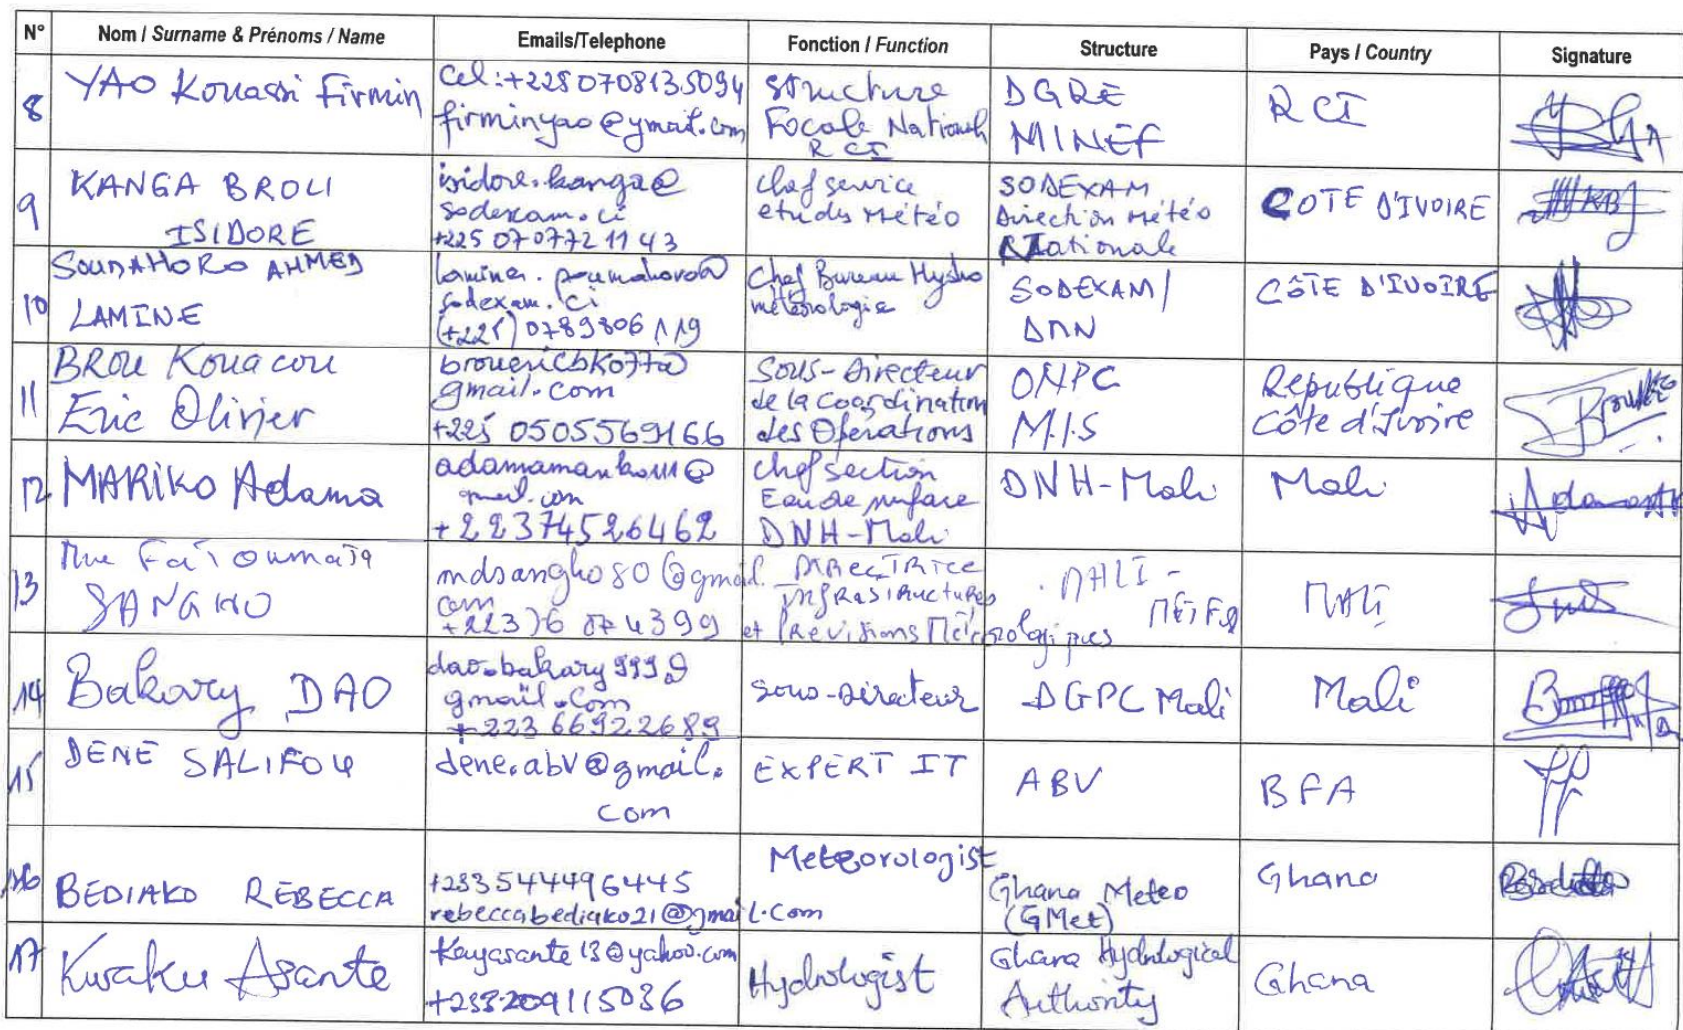 N° Nom / Surname & Prénoms / Name Emails/Telephone Fonction / Function Structure Pays / Country Signature
8 YAO Kouassi Firmin
cel:+228 0708135094
firminyao@ymail.com
Structure
Focale Nationale
RCI
DGRE
MINEF
RCI
9 KANGA BROLI
ISIDORE
isidore.kanga@
sodexam.ci
+225 0707721143
chef service
etudes Météo
SODEXAM
Direction Météo
Nationale
COTE D'IVOIRE
10 SOUMAHORO AHMED
LAMINE
lamine.soumahoro@
sodexam.ci
(+225) 0789806119
Chef Bureau Hydro
météorologie
SODEXAM/
DMN
CÔTE D'IVOIRE
11 BROU Kouacou
Eric Olivier
brouericbko77@
gmail.com
+225 0505569166
Sous-Directeur
de la Coordination
des Opérations
ONPC
M.I.S
République
Côte d'Ivoire
12 MARIKO Adama
+22374526462
chef section
Eau de surface
DNH-Mali
DNH-Mali
Mali
13 Mme Fatoumata
SANGHO
mdsangho80@gmail.
com
+223 76 07 4399
DIRECTRICE
Infrastructures
et Prévisions Météorologiques
MALI-
METEO
MALI
14 Bakary DAO
dao.bakary999@
gmail.com
+223 66922689
Sous-Directeur
DGPC Mali
Mali
15 DENE SALIFOU
dene.abv@gmail.
com
EXPERT IT
ABV
BFA
16 BEDIAKO REBECCA
+233544496445
rebeccabediako21@gmail.com
Meteorologist
Ghana Meteo
(GMet)
Ghana
17 Kwaku Asante
Kayasante13@yahoo.com
+233209115036
Hydrologist
Ghana Hydrological
Authority
Ghana